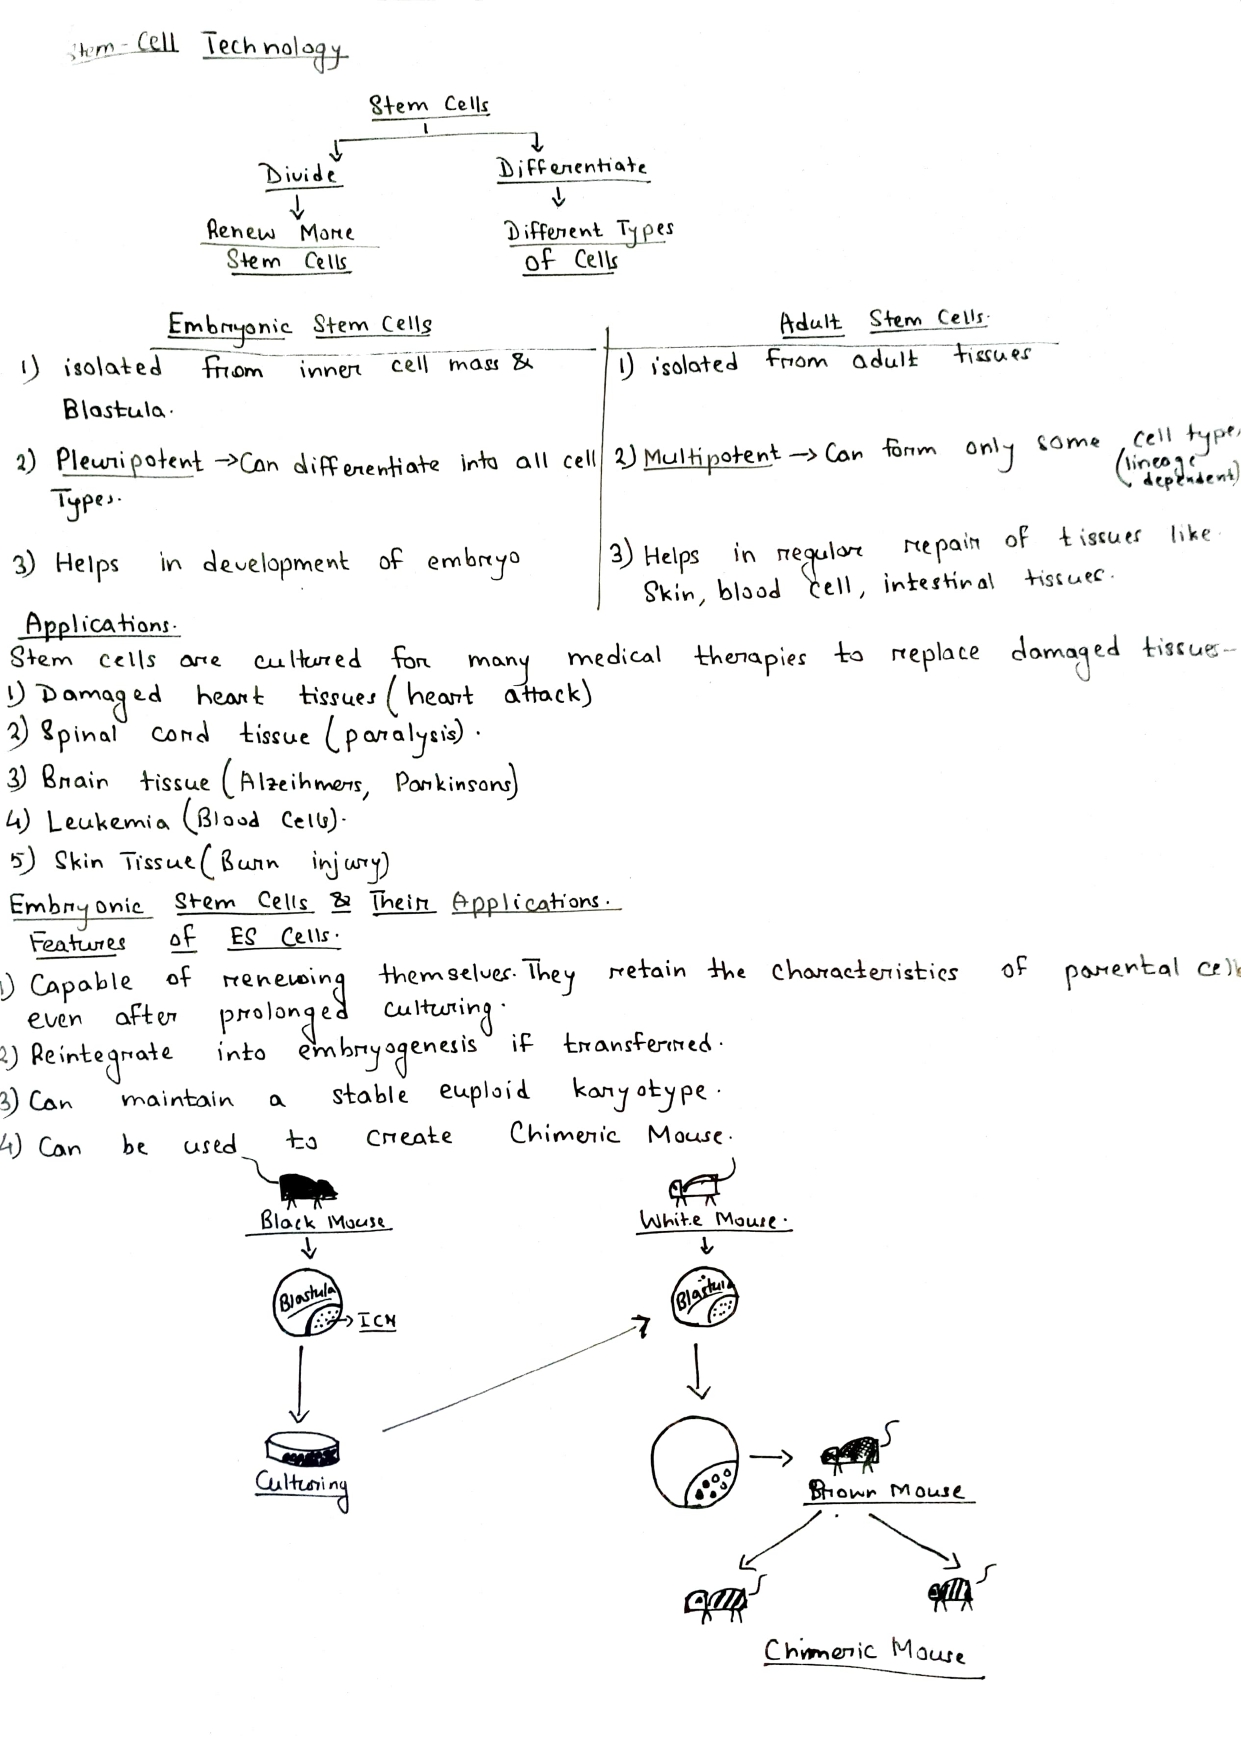 Stem-Cell Technology
Stem Cells
Divide
Differentiate
Renew More
Stem Cells
Different Types
of Cells
Embryonic Stem Cells
1) isolated from inner cell mass &
Blastula.
2) Pleuripotent → Can differentiate into all cell
Types.
3) Helps in development of embryo
Adult Stem Cells.
1) isolated from adult tissues
2) Multipotent → Can form only some cell types
(lineage
dependent)
3) Helps in regular repair of tissues like
Skin, blood cell, intestinal tissues.
Applications.
Stem cells are cultured for many medical therapies to replace damaged tissues-
1) Damaged heart tissues (heart attack)
2) Spinal cord tissue (paralysis).
3) Brain tissue (Alzeihmers, Parkinsons)
4) Leukemia (Blood Cells).
5) Skin Tissue (Burn injury)
Embryonic Stem Cells & Their Applications.
Features of ES Cells.
1) Capable of renewing themselves. They retain the characteristics of parental cells
even after prolonged culturing.
2) Reintegrate into embryogenesis if transferred.
3) Can maintain a stable euploid karyotype.
4) Can be used to create Chimeric Mouse.
Black Mouse
White Mouse.
Blastula
ICM
Blastula
Culturing
Brown Mouse
Chimeric Mouse